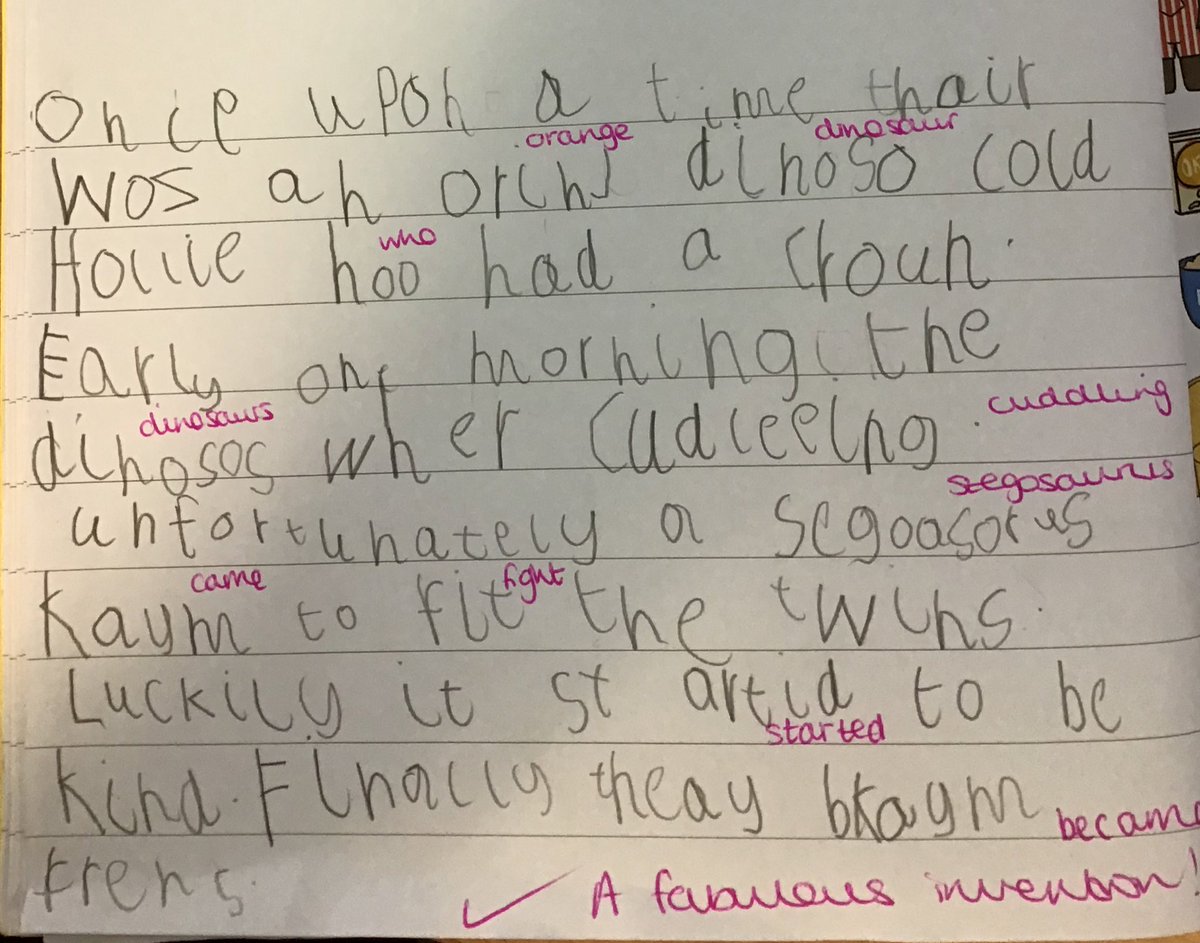 Once upon a time thair
orange dinosaur
wos an orinj dinoso cold
who
Hollie hoo had a croun.
Early one morning the
dinosaurs cuddling
dinosos wher cudleeing.
stegosaurus
unfortunately a segoasorus
came fight
Kaym to fit the twins.
Luckily it startid to be
started
kind. Finally theay bkaym became
frens.
✓ A fabulous invention!